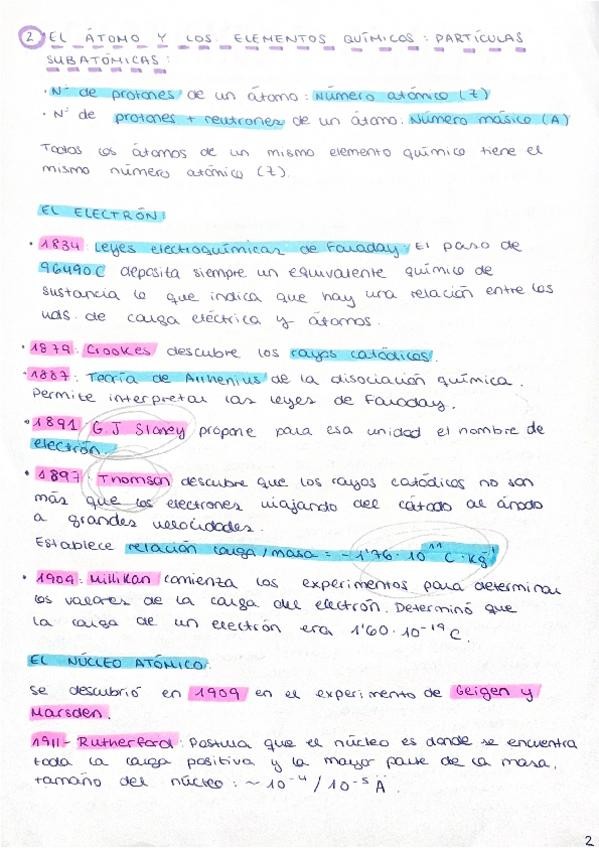 2 EL ÁTOMO Y LOS ELEMENTOS QUÍMICOS: PARTÍCULAS
SUBATÓMICAS:
· Nº de protones de un átomo: Número atómico (Z)
· Nº de protones + neutrones de un átomo: Número másico (A)
Todos los átomos de un mismo elemento químico tiene el
mismo número atómico (Z).
EL ELECTRÓN:
· 1834: Leyes electroquímicas de Faraday: El paso de
96490 C deposita siempre un equivalente químico de
sustancia lo que indica que hay una relación entre las
uds. de carga eléctrica y átomos.
· 1879: Crookes descubre los rayos catódicos.
· 1887: Teoría de Arrhenius de la disociación química.
Permite interpretar las leyes de Faraday.
· 1891 G.J Stoney propone para esa unidad el nombre de
electrón.
· 1897: Thomson descubre que los rayos catódicos no son
más que los electrones viajando del cátodo al ánodo
a grandes velocidades.
Establece relación carga/masa = -1'76·10¹¹ C·kg⁻¹
· 1909: Millikan comienza los experimentos para determinar
los valores de la carga del electrón. Determinó que
la carga de un electrón era 1'60·10⁻¹⁹ C.
EL NÚCLEO ATÓMICO:
Se descubrió en 1909 en el experimento de Geigen y
Marsden.
1911- Rutherford: Postula que el núcleo es donde se encuentra
toda la carga positiva y la mayor parte de la masa.
tamaño del núcleo: ~ 10⁻⁴ / 10⁻⁵ Å.
2